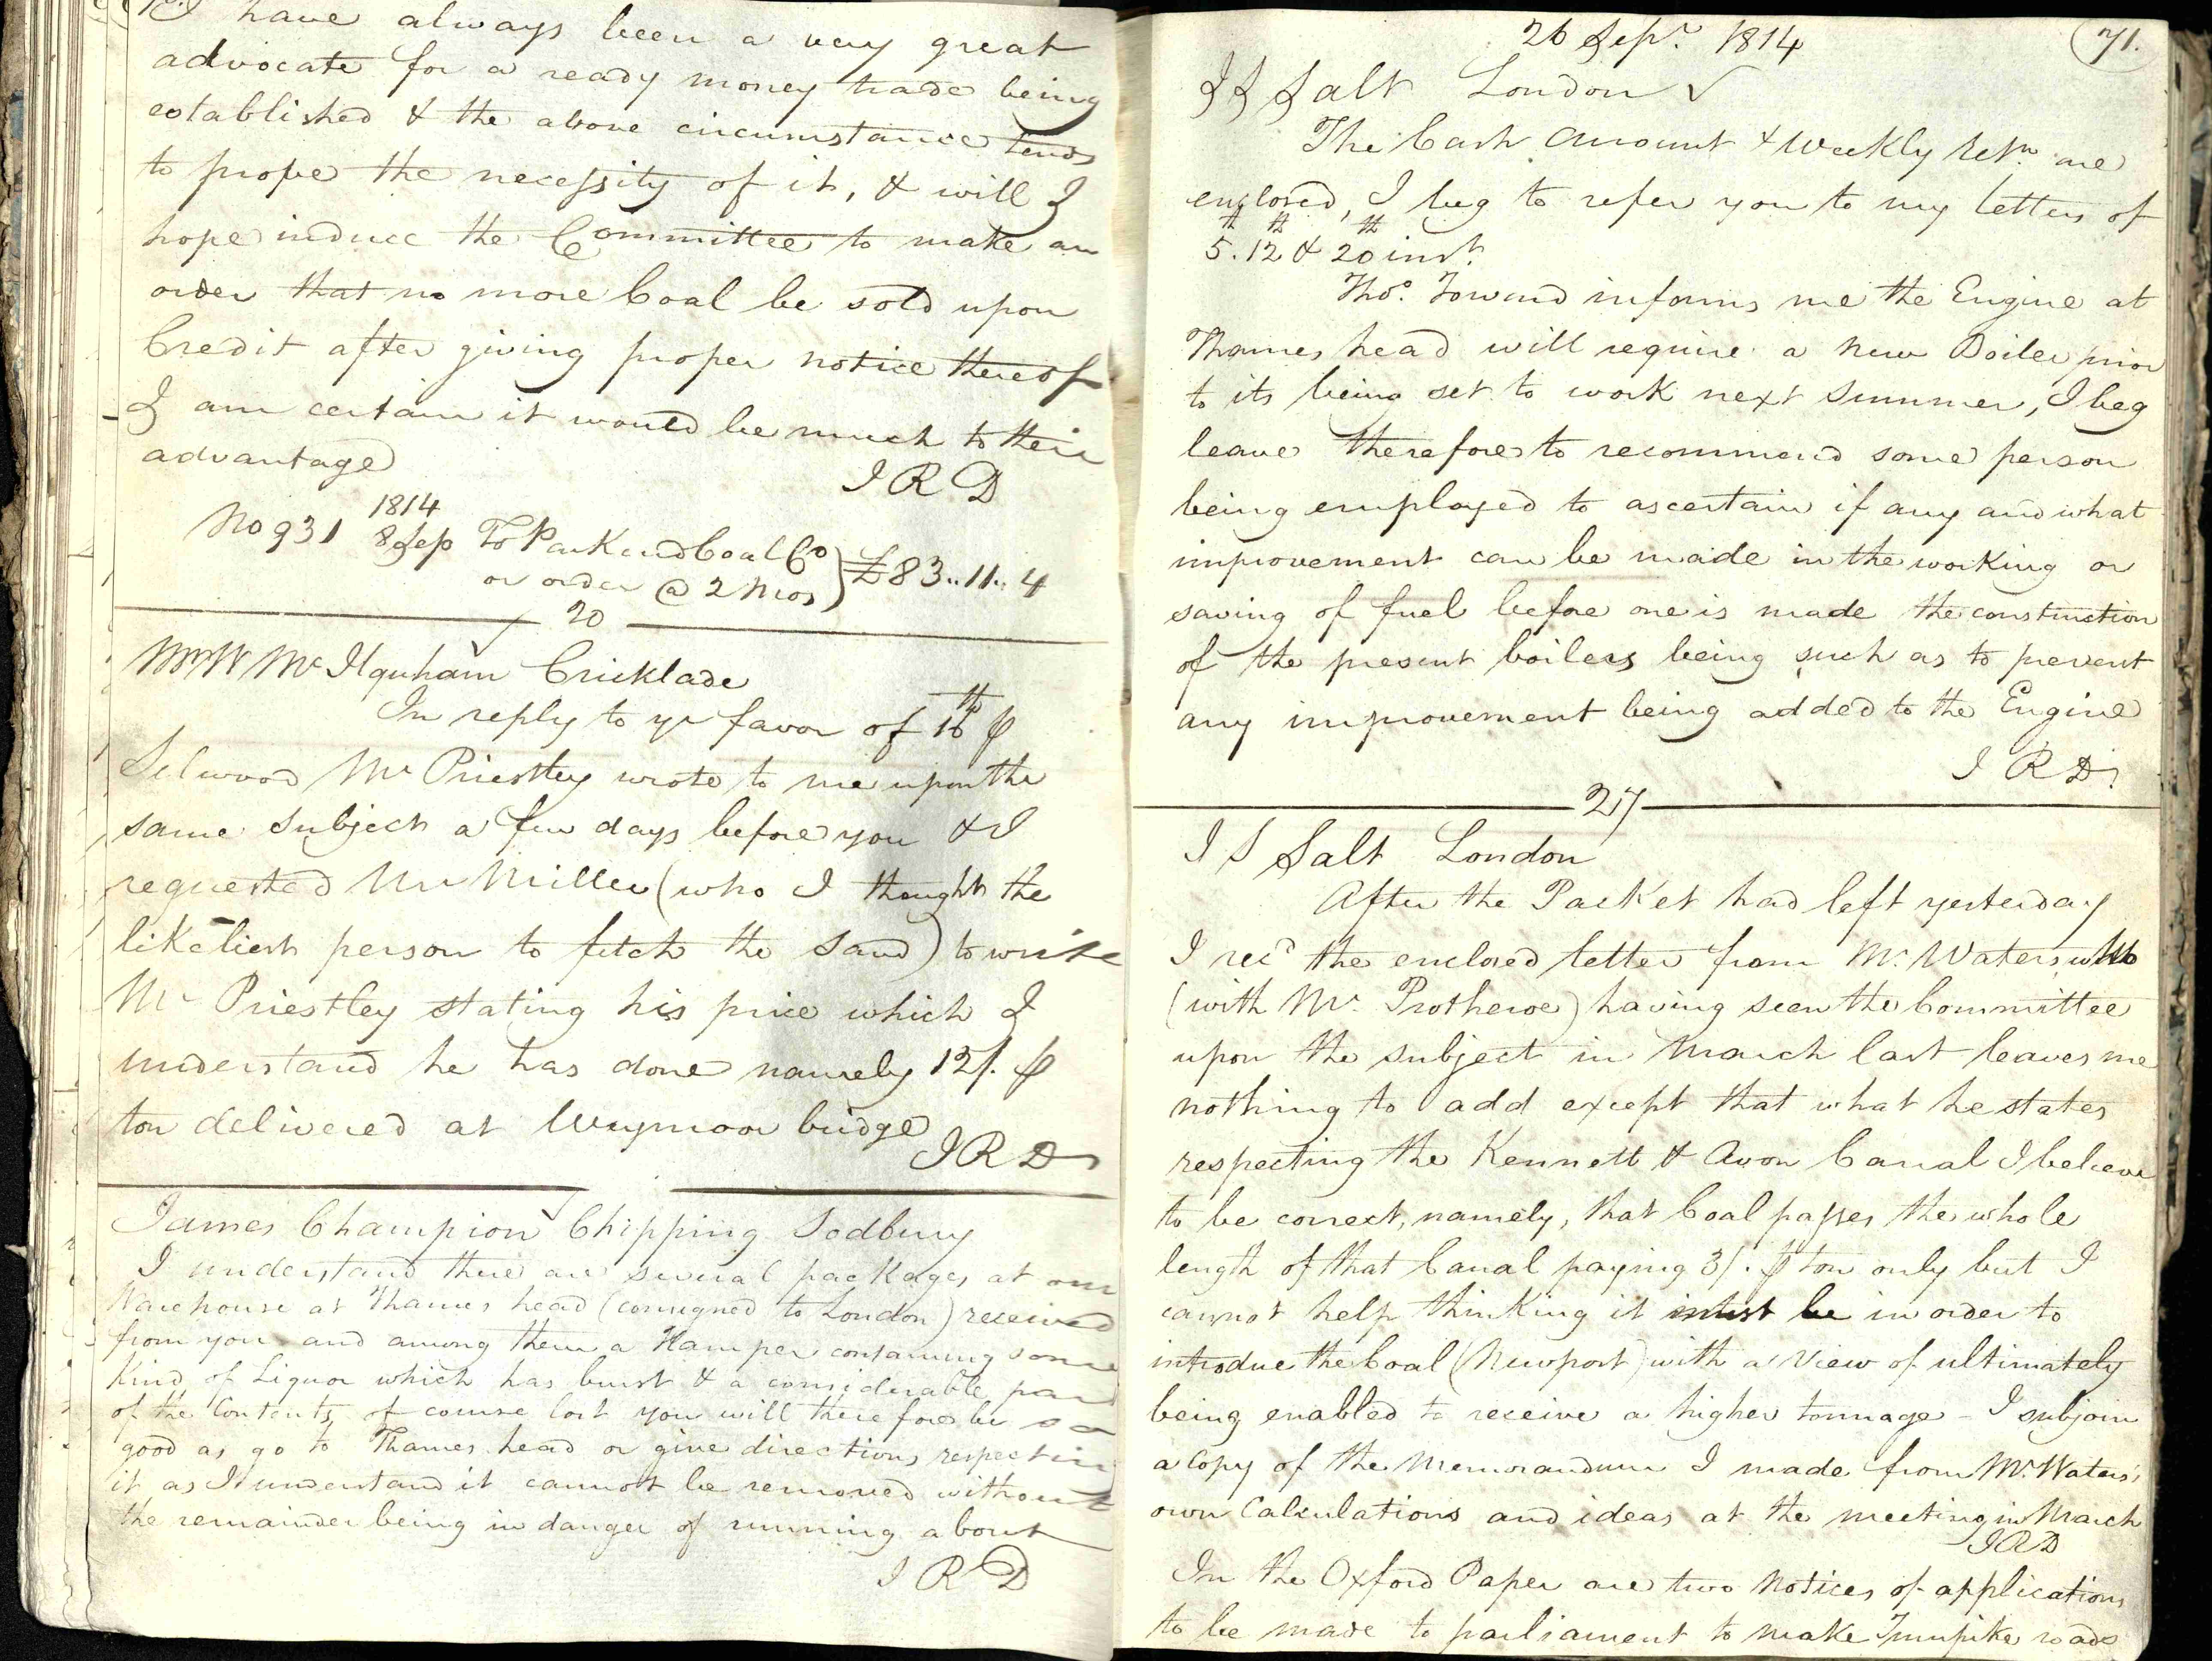 I have always been a very great
advocate for a ready money trade being
established & the above circumstance tends
to prove the necessity of it, & will I
hope induce the Committee to make an
order that no more Coal be sold upon
Credit after giving proper notice thereof
I am certain it would be much to their
advantage
I R D
No 931 1814
8 Sep To Parkend Coal Co
or order @ 2 Mos } £83..11..4
20
Mr W Mc Ilquham Cricklade
In reply to yr favor of 16th ⅌
Selwood Mr Priestley wrote to me upon the
same subject a few days before you & I
requested Mr Miller (who I thought the
likeliest person to fetch the sand) to write
Mr Priestley stating his price which I
understand he has done namely 12/. ⅌
ton delivered at Weymoor bridge
I R D
James Champion Chipping Sodbury
I understand there are several packages at our
Warehouse at Thames head (consigned to London) received
from you and among them a Hamper containing some
kind of Liquor which has burst & a considerable part
of the Contents of course lost you will therefore be so
good as go to Thames head or give directions respecting
it as I understand it cannot be removed without
the remainder being in danger of running about
I R D
26 Sepr. 1814
71.
I S Salt London
The Cash Account & Weekly Retn. are
enclosed, I beg to refer you to my letters of
5th. 12th & 20th inst.
Thos. Toward informs me the Engine at
Thames head will require a new Boiler prior
to its being set to work next Summer, I beg
leave therefore to recommend some person
being employed to ascertain if any and what
improvement can be made in the working or
saving of fuel before one is made the construction
of the present boilers being such as to prevent
any improvement being added to the Engine
I R D
27
I S Salt London
After the Packet had left yesterday
I recd the enclosed letter from Mr. Waters who
(with Mr. Protheroe) having seen the Committee
upon the subject in March last leaves me
nothing to add except that what he states
respecting the Kennett & Avon Canal I believe
to be correct, namely, that Coal passes the whole
length of that Canal paying 3/. ⅌ ton only but I
cannot help thinking it must be in order to
introduce the Coal (Newport) with a View of ultimately
being enabled to receive a higher tonnage - I subjoin
a Copy of the Memorandum I made from Mr. Waters's
own Calculations and ideas at the meeting in March
I R D
In the Oxford Paper are two Notices of applications
to be made to parliament to make Turnpike roads